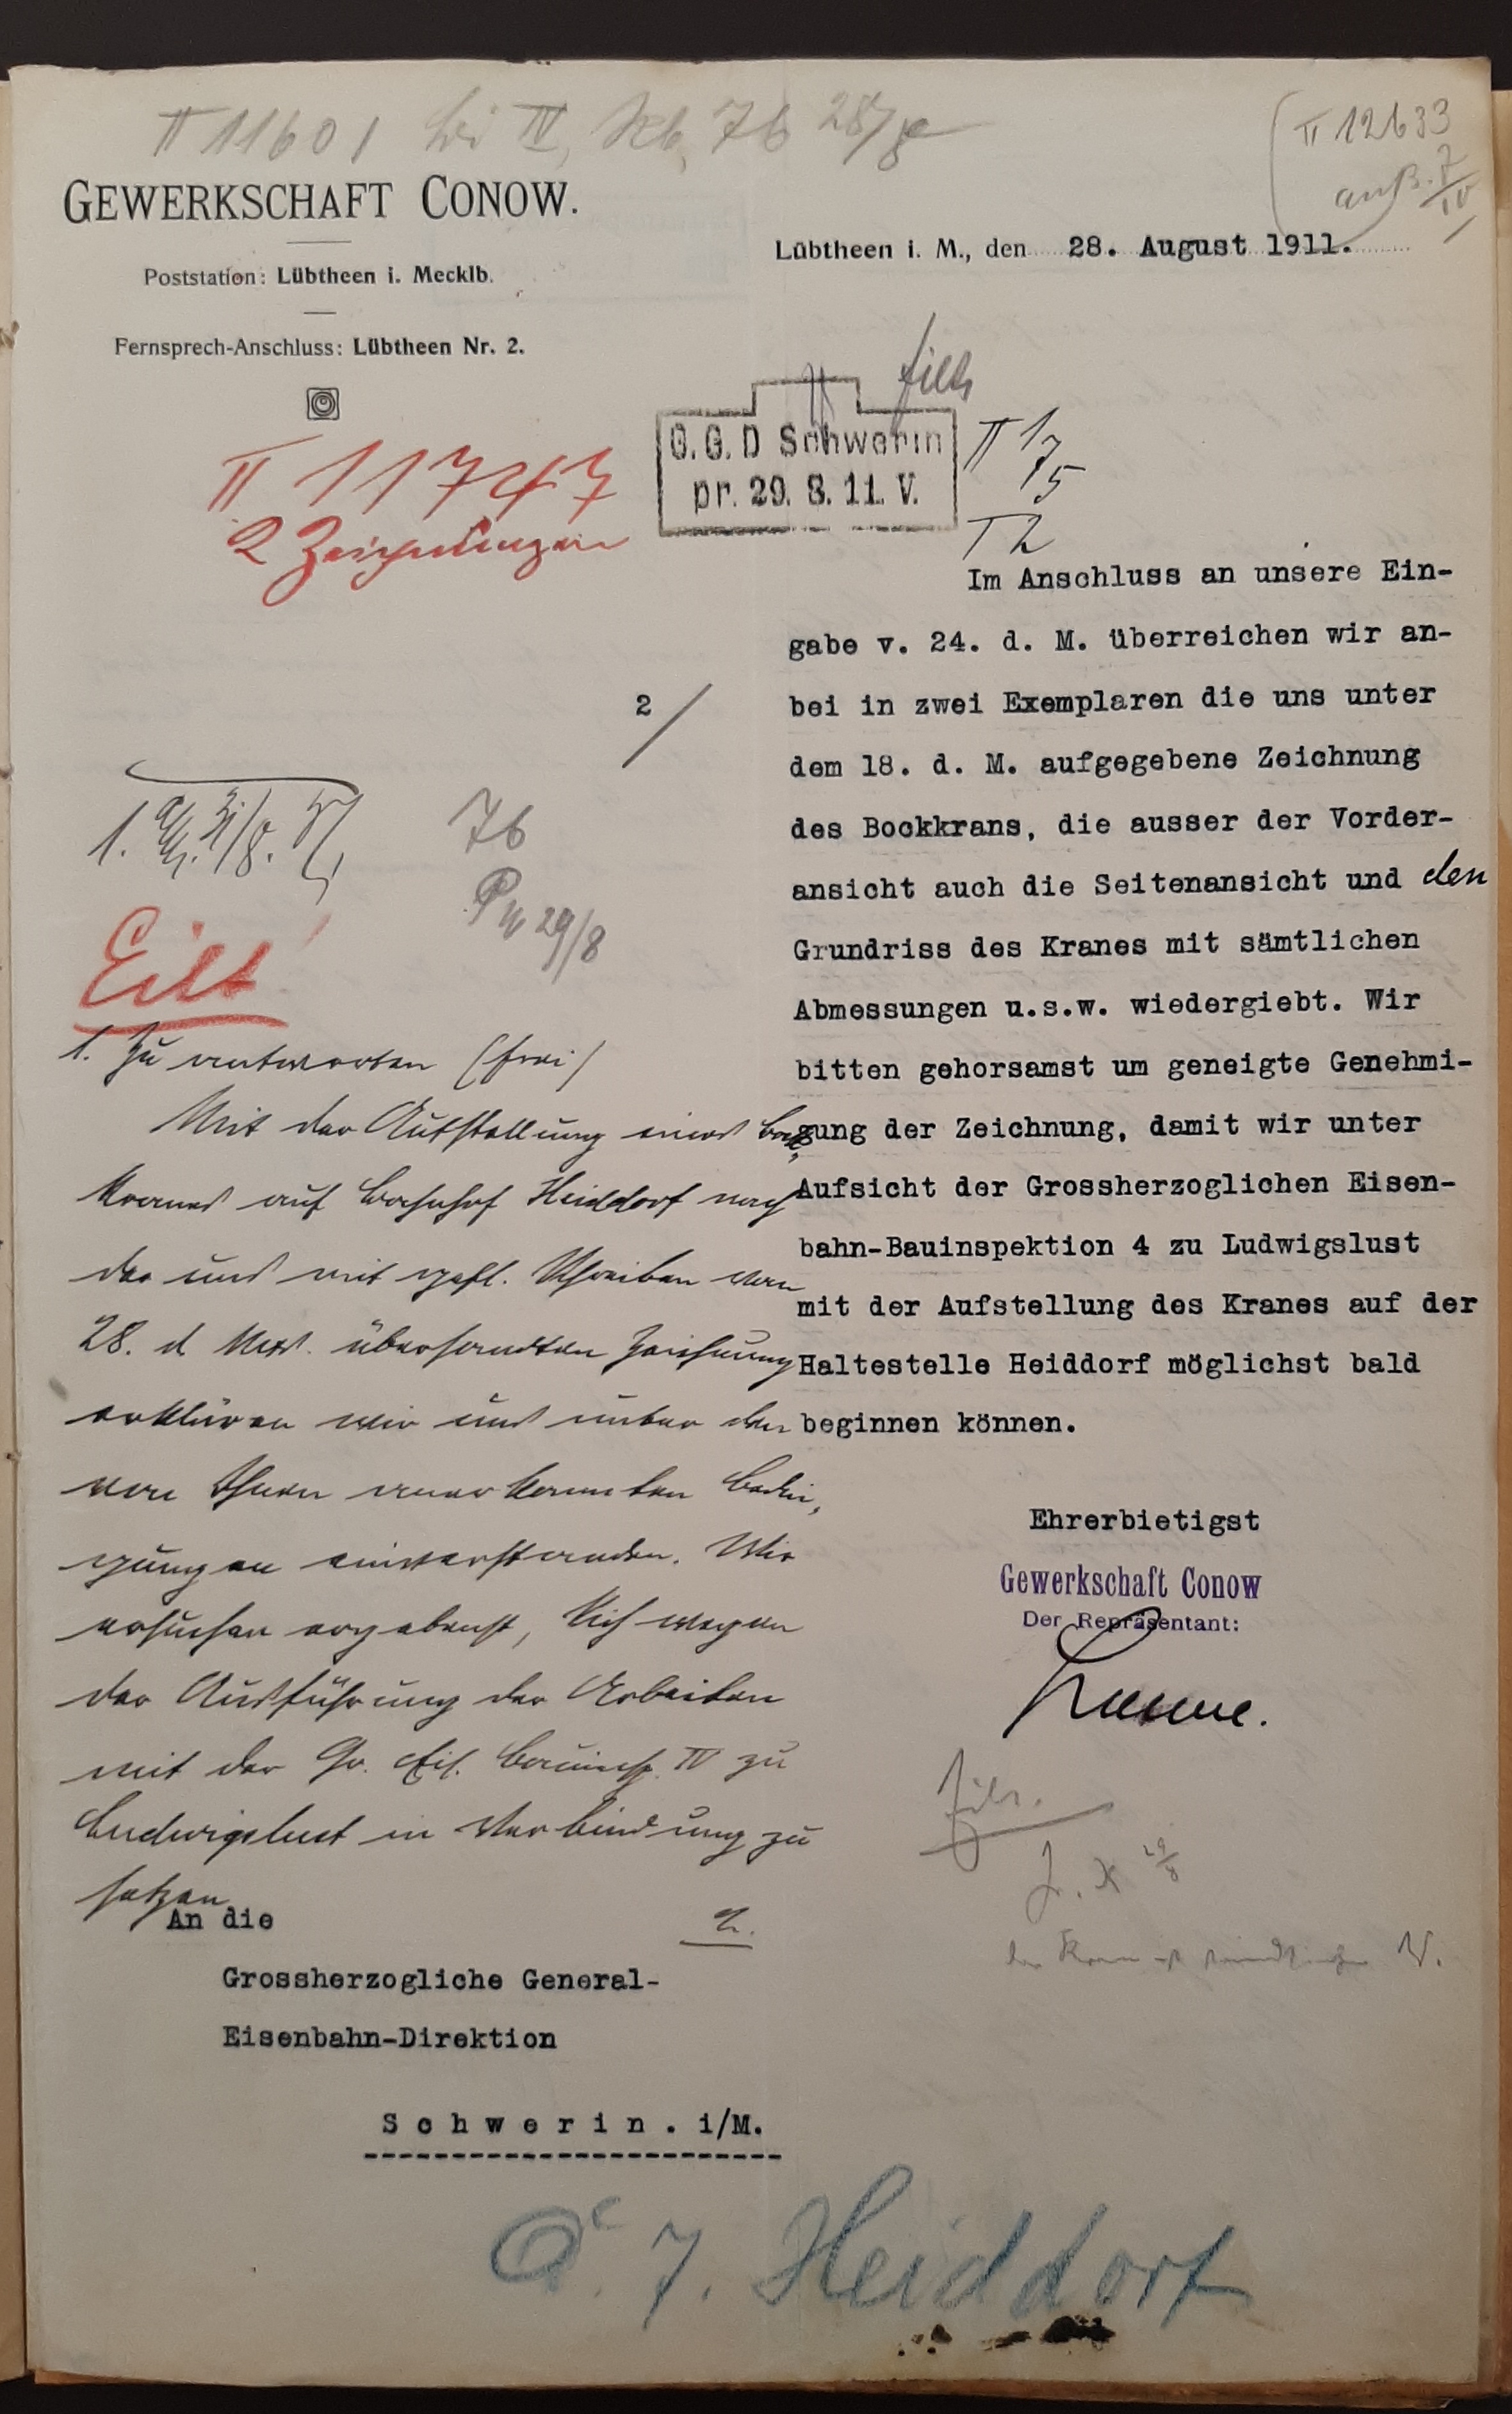 II 11601 bei IV, 7b 28/8
II 12633
GEWERKSCHAFT CONOW.
Poststation: Lübtheen i. Mecklb.
Fernsprech-Anschluss: Lübtheen Nr. 2.
Lübtheen i. M., den 28. August 1911.
Eilt
G.G.D Schwerin
pr. 29. 8. 11. V.
II 17
15
T 2
II 11747
2 Zeichnungen
2/
Im Anschluss an unsere Ein-
gabe v. 24. d. M. überreichen wir an-
bei in zwei Exemplaren die uns unter
dem 18. d. M. aufgegebene Zeichnung
des Bockkrans, die ausser der Vorder-
ansicht auch die Seitenansicht und den
Grundriss des Kranes mit sämtlichen
Abmessungen u.s.w. wiedergiebt. Wir
bitten gehorsamst um geneigte Genehmi-
gung der Zeichnung, damit wir unter
Aufsicht der Grossherzoglichen Eisen-
bahn-Bauinspektion 4 zu Ludwigslust
mit der Aufstellung des Kranes auf der
Haltestelle Heiddorf möglichst bald
beginnen können.
Ehrerbietigst
Gewerkschaft Conow
Der Repräsentant:
1. 31/8.
7b
29/8
Eilt
1. Zu antworten (frei)
Mit der Aufstellung eines Bock-
kranes auf Bahnhof Heiddorf nach
der uns mit gefl. Schreiben vom
28. d. Mts. übersandten Zeichnung
erklären wir uns unter den
von Ihnen anerkannten Bedin-
gungen einverstanden. Wir
ersuchen ergebenst, sich wegen
der Ausführung der Arbeiten
mit der Gr. Eis. Bauinsp. IV zu
Ludwigslust in Verbindung zu
setzen
29/8
An die
Grossherzogliche General-
Eisenbahn-Direktion
Schwerin . i/M.
7. Heiddorf